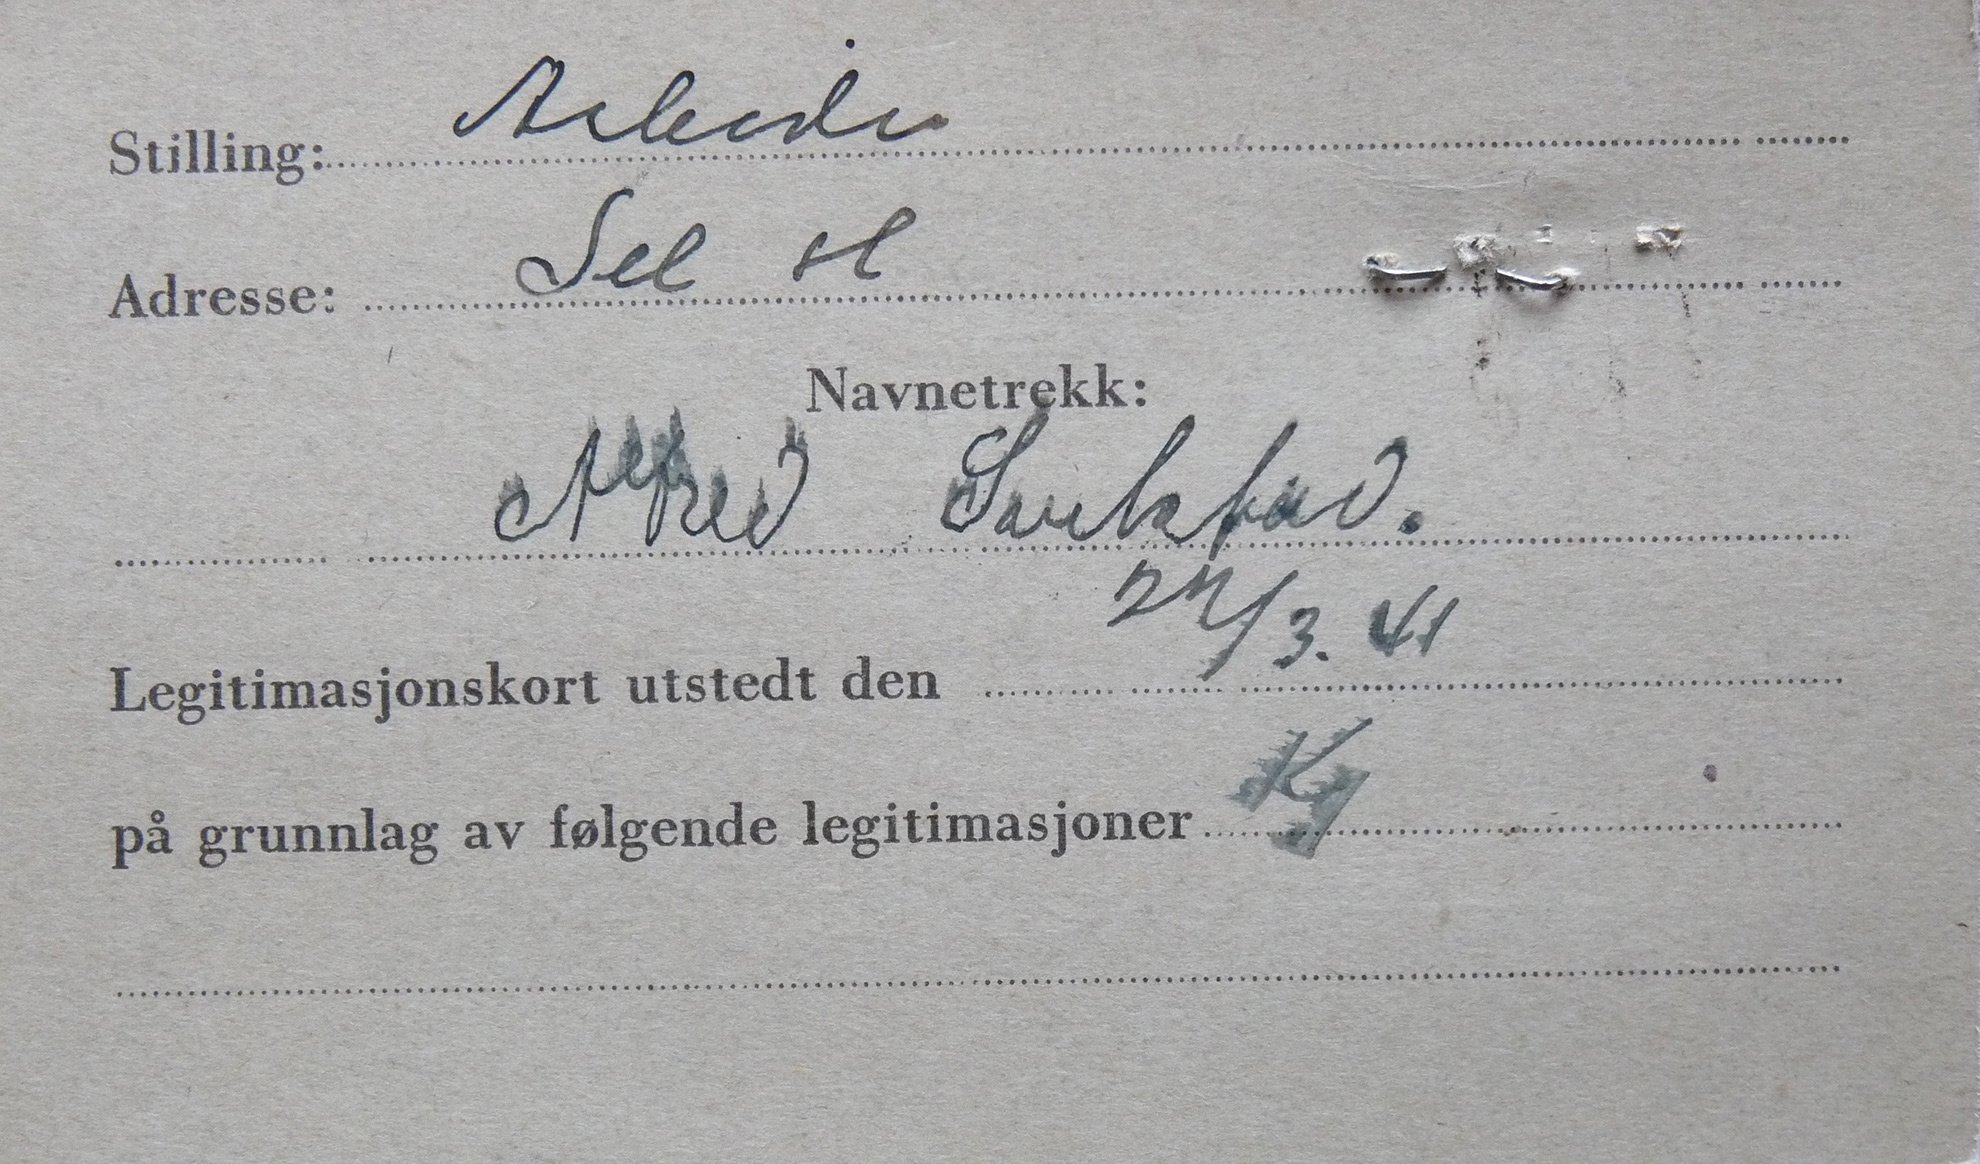 Stilling: Arbeider
Adresse: Sel st
Navnetrekk:
Alfred
/3. 41
Legitimasjonskort utstedt den
på grunnlag av følgende legitimasjoner Kj